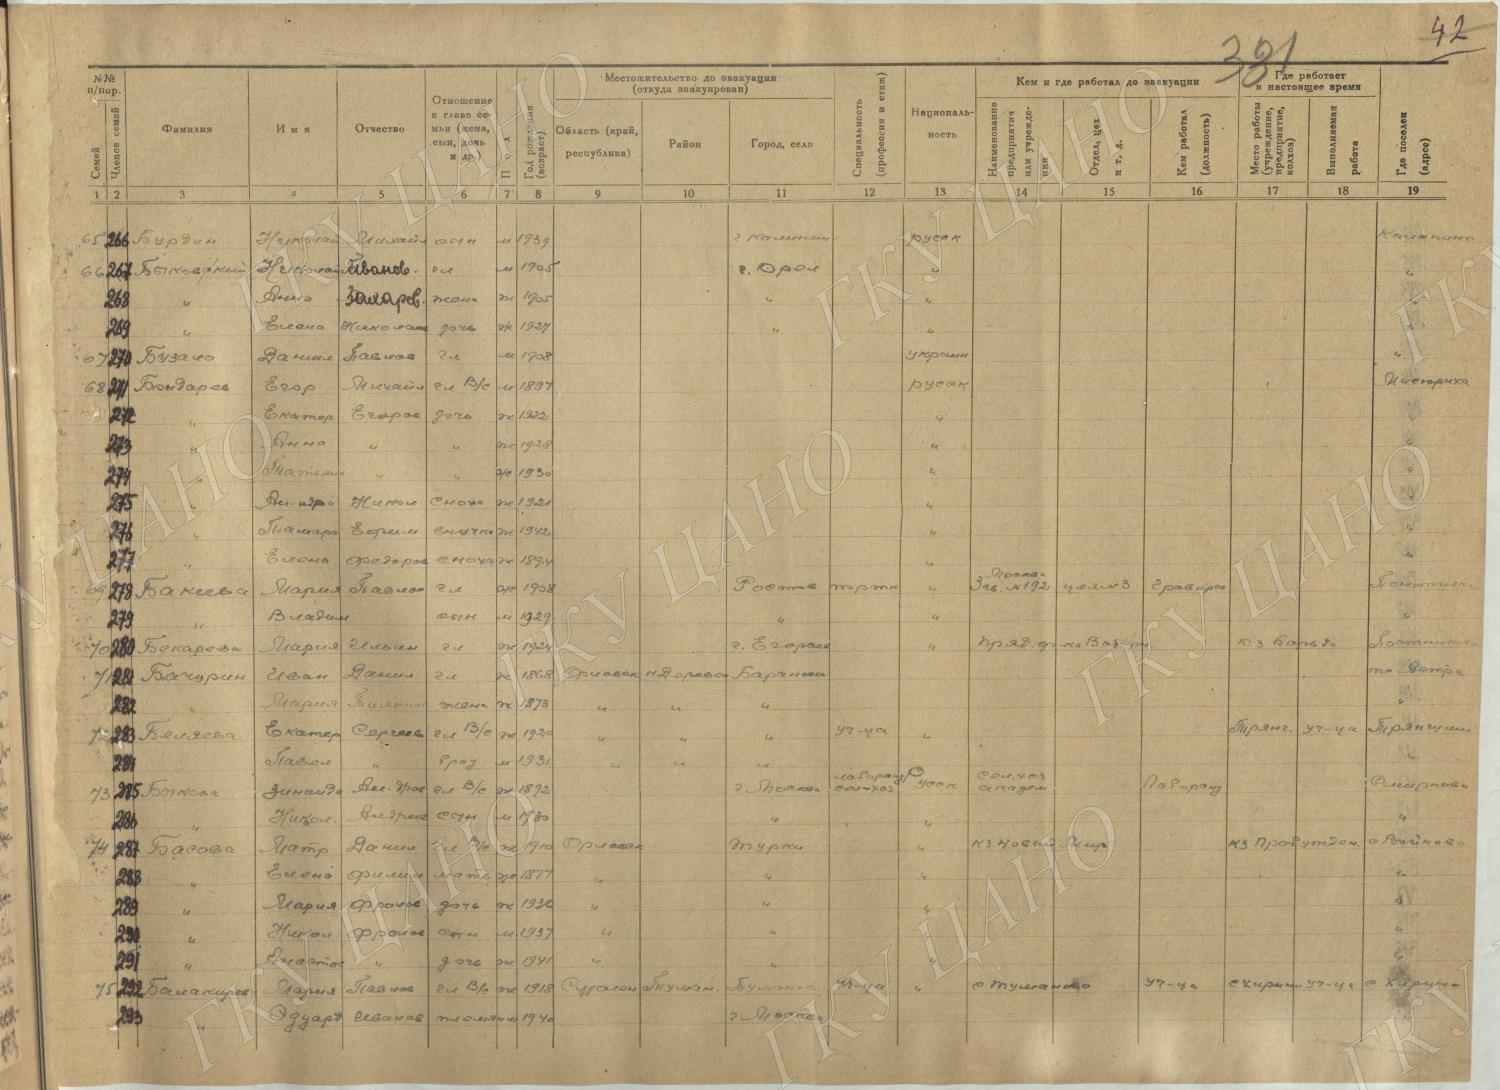 42
331
№№ п/пор.
Семей
Членов семей
Фамилия
Имя
Отчество
Отношение к главе семьи (жена, сын, дочь и др.)
Пол
Год рождения (возраст)
Местожительство до эвакуации (откуда эвакуирован)
Область (край, республика)
Район
Город, село
Специальность (профессия и стаж)
Националь-ность
Кем и где работал до эвакуации
Наименование предприятия или учреждения
Отдел, цех и т. д.
Кем работал (должность)
Где работает в настоящее время
Место работы (учреждение, предприятие, колхоз)
Выполняемая работа
Где поселен (адрес)
1 2 3 4 5 6 7 8 9 10 11 12 13 14 15 16 17 18 19
65 266 Бурдин Николай Михайл сын м 1939 г Калинин русск
66 267 Быковский Николай Иванов. гл м 1905 г. Орел "
268 " Анна Захаров. жена ж 1905 " "
269 " Елена Николаев дочь ж 1927 " "
67 270 Бузало Даниил Павлов гл м 1908 украин "
68 271 Бондарев Егор Михайл гл В/с м 1897 русск
272 " Екатер Егоров дочь ж 1922 "
273 " Анна " " ж 1928 " "
274 " Татьяна " " ж 1930 " "
275 " Ал-дра Никол сноха ж 1921 " "
276 " Тамара Ефим внучка ж 1942 " "
277 " Елена Федоров сноха ж 1894 "
69 278 Бакеева Мария Павлов гл ж 1908 Ростов " Москва Зав. №192 цех №3
279 " Владим сын м 1929 " " "
70 280 Бекарева Мария Ильин гл ж 1924 г. Егорьев " Пряд. ф-ка
71 281 Бачурин Иван Данил гл 1868 Орловск Бараново
282 " Мария жена ж 1873 " " " "
72 283 Беляева Екатер Сергеев гл В/с ж 1920 " " " уч-ца " уч-ца
284 " Павел " брат м 1931 " " " "
73 285 Быкова Зинаида Ал-дров гл В/с ж 1892 г. Москва лаборант сельхоз Русск сельхоз академ Лаборант Смирново
286 " Никол. Андрее сын м 1930 " " "
74 287 Басова Матр Данил гл В/с ж 1910 Орловск Турки " кз Новый Мир кз Пробужден
288 " Елена Филип мать ж 1877 " " " "
289 " Мария Фролов дочь ж 1936 " " " "
290 " Никол Фролов сын м 1937 " " " "
291 " Анастас " дочь ж 1941 " " " "
75 292 Балакирев Мария Павлов гл В/с ж 1918 Смолен Туман. Туманово уч-ца " с Туманово уч-ца с Кирино уч-ца с Кирино
293 " Эдуард Иванов племян м 1940 г Москва
ГКУ ЦАНО